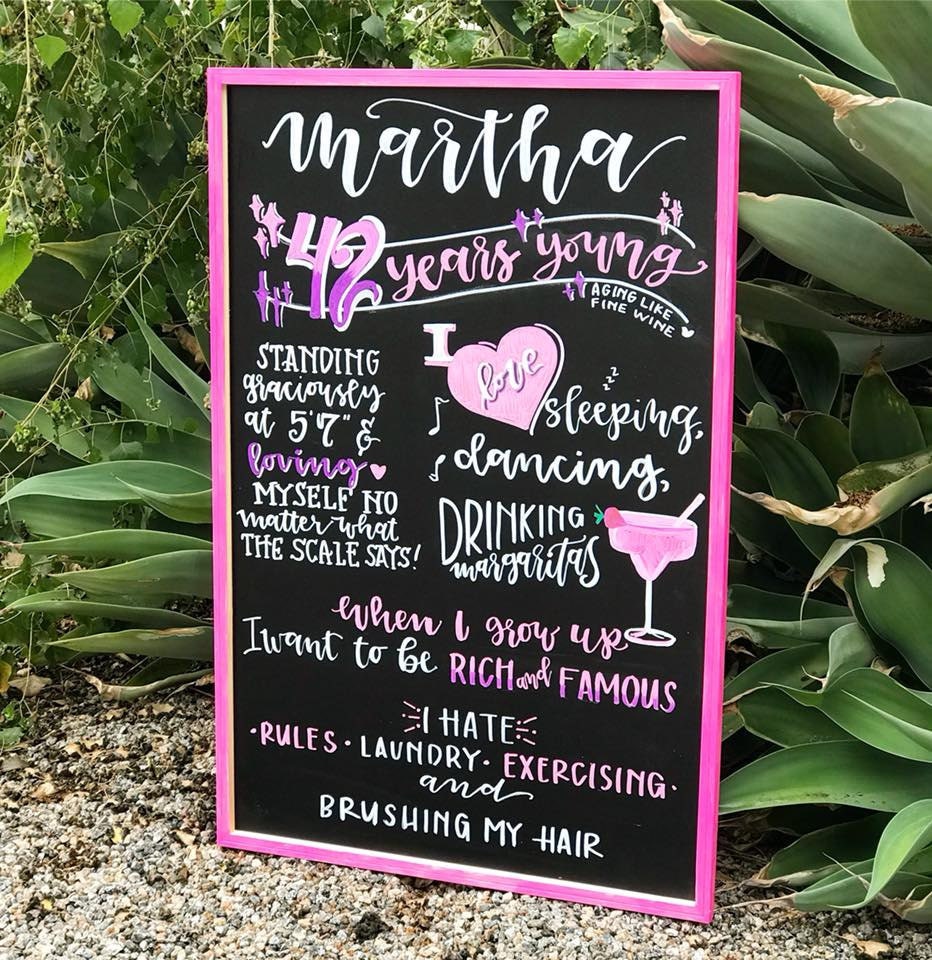 martha
42 years young
AGING LIKE
FINE WINE
STANDING
graciously
at 5'7" &
loving
MYSELF NO
matter what
THE SCALE SAYS!
I love
zzz
sleeping,
dancing,
DRINKING
margaritas
when I grow up
I want to be RICH and FAMOUS
I HATE
·RULES· LAUNDRY· EXERCISING·
and
BRUSHING MY HAIR